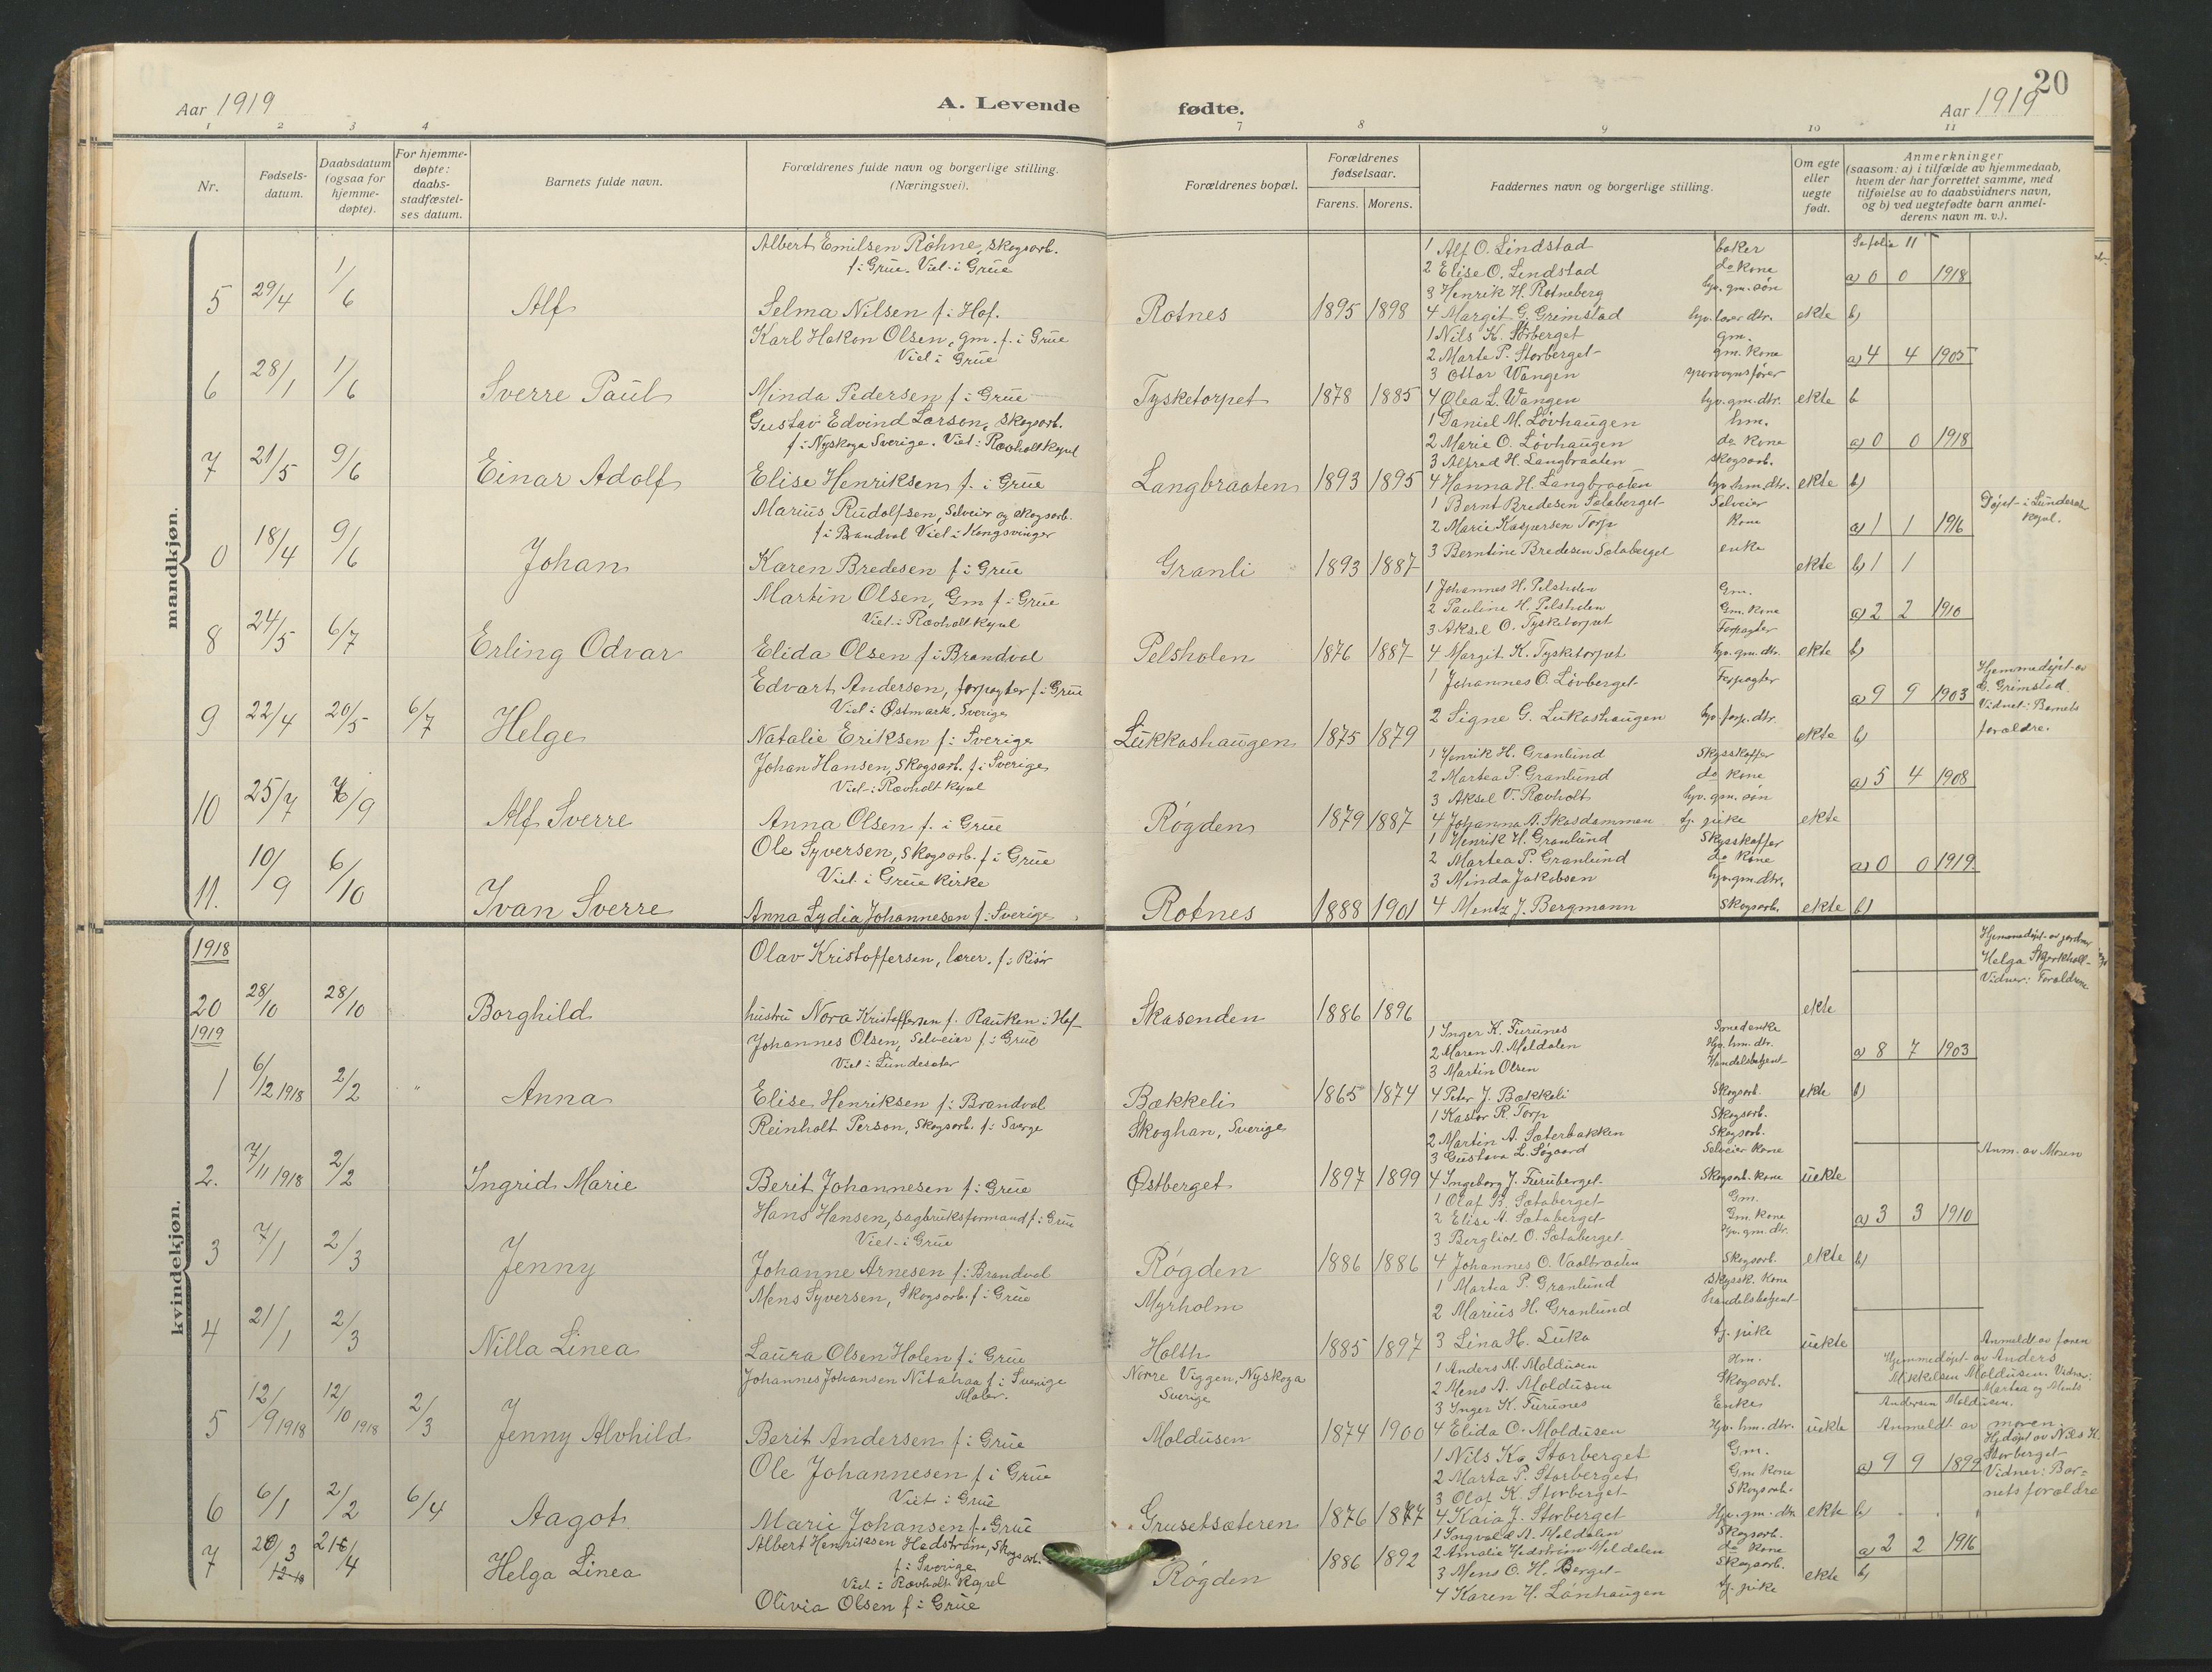 Aar 1919
A. Levende
fødte.
Aar 1919
20
1 2 3 4 7 8 9 10 11
Nr.
Fødsels-
datum.
Daabsdatum
(ogsaa for
hjemme-
døpte).
For hjemme-
døpte:
daabs-
stadfæstel-
ses datum.
Barnets fulde navn.
Forældrenes fulde navn og borgerlige stilling.
(Næringsvei).
Forældrenes bopæl.
Forældrenes
fødselsaar.
Farens. Morens.
Faddernes navn og borgerlige stilling.
Om egte
eller
uegte
født.
Anmerkninger
(saasom: a) i tilfælde av hjemmedaab,
hvem der har forrettet samme, med
tilføielse av to daabsvidners navn,
og b) ved uegtefødte barn anmel-
derens navn m. v.).
mandkjøn.
5 29/4 1/6 Alf
Albert Emilsen Röhne, skogsarb.
f. i Grue. Viet i Grue
Selma Nilsen f. i Hof.
Rotnes 1895 1898
1 Alf O. Lindstad baker
2 Elise O. Lindstad do kone
3 Henrik H. Rotneberg hjv. gm. søn
4 Margit G. Grimstad hjv. lærer dtr.
ekte
Se folio 11
a) 0 0 1918
b)
6 28/1 1/6 Sverre Paul
Karl Hakon Olsen, gm. f. i Grue
Viet i Grue
Minda Pedersen f. i Grue
Tysketorpet 1878 1885
1 Nils K. Storberget gm.
2 Marte P. Storberget gm. kone
3 Ottar Wangen sporvognsfører
4 Olea L. Wangen hjv. gm. dtr.
ekte
a) 4 4 1905
b
7 21/5 9/6 Einar Adolf
Gustav Edvind Larson, skogsarb.
f. i Nyskoga Sverige. Viet i Rævholt kapel
Elise Henriksen f. i Grue
Langbraaten 1893 1895
1 Daniel M. Lövhaugen hm.
2 Marie O. Lövhaugen do kone
3 Alfred H. Langbraaten skogsarb.
4 Hanna H. Langbraaten hjv. hm. dtr.
ekte
a) 0 0 1918
b)
0 18/4 9/6 Johan
Marius Rudolfsen, Selveier og skogsarb.
f. i Brandval Viet i Kongsvinger
Karen Bredesen f. i Grue
Granli 1893 1887
1 Bernt Bredesen Sætaberget Selveier
2 Marie Kaspersen Torp kone
3 Berntine Bredesen Sætaberget enke
ekte
a) 1 1 1916
b) 1 1
Døpt i Lundersæter
kapel.
8 24/5 6/7 Erling Odvar
Martin Olsen, Gm f. i Grue
Viet i Rævholt kapel
Elida Olsen f. i Brandval
Pelsholen 1876 1887
1 Johannes H. Pelsholen Gm.
2 Pauline H. Pelsholen Gm. kone
3 Aksel O. Tysketorpet Forpagter
4 Margit K. Tysketorpet hjv. gm. dtr.
ekte
a) 2 2 1910
b)
9 22/4 20/5 6/7 Helge
Edvart Andersen, forpagter f. i Grue
Viet i Østmark, Sverige
Natalie Eriksen f. i Sverige
Lukkashaugen 1875 1879
1 Johannes O. Lövberget Forpagter
2 Signe G. Lukashaugen hjv. forp. dtr.
ekte
a) 9 9 1903
b)
Hjemmedøpt av
G. Grimstad.
Vidnet: Barnets
forældre.
10 25/7 7/9 Alf Sverre
Johan Hansen, Skogsarb. f. i Sverige
Viet i Rævholt kapel
Anna Olsen f. i Grue
Røgden 1879 1887
1 Henrik H. Granlund Skysskaffer
2 Martea P. Granlund do kone
3 Aksel V. Rævholt hjv. gm. søn
4 Johanna A. Skasdammen tj. pike
ekte
a) 5 4 1908
11. 10/9 6/10 Ivan Sverre
Ole Syversen, Skogsarb. f. i Grue
Viet i Grue kirke
Anna Lydia Johannesen f. i Sverige
Rotnes 1888 1901
1 Henrik H. Granlund Skysskaffer
2 Martea P. Granlund do kone
3 Minda Jakobsen hjv. gm. dtr.
4 Mentz J. Bergmann Skogsarb.
ekte
a) 0 0 1919
b)
kvindekjøn.
1918
20 28/10 28/10 Borghild
Olav Kristoffersen, lærer. f. i Risør
hustru Nora Kristoffersen f. Rauken i Hof
Skasenden 1886 1896
ekte
Hjemmedøpt av jordmor
Helga
Vidner: Forældrene
1919
1 6/12 1918 2/2 " Anna
Johannes Olsen, Selveier f. i Grue
Viet i Lundesæter
Elise Henriksen f. i Brandval
Bækkeli 1865 1874
1 Inger K. Furunes Smedenke
2 Maren A. Meldalen Hjv. hm. dtr.
3 Martin Olsen Handelsbetjent
4 Peter J. Bækkeli Skogsarb.
ekte
a) 8 7 1903
b)
2. 7/11 1918 2/2 Ingrid Marie
Reinholt Person, Skogsarb. f. i Sverge
Berit Johannesen f. i Grue
Skoghan, Sverige
Østberget 1897 1899
1 Kastor R. Torp Skogsarb.
2 Martin A. Sæterbakken Skogsarb.
3 Gustava L. Søgaard Selveier kone
4 Ingeborg J. Furuberget Skogsarb. kone
uekte
Anm. av Moren
3 7/1 2/3 Jenny
Hans Hansen, sagbruksformand f. i Grue
Viet i Grue
Johanne Arnesen f. i Brandval
Røgden 1886 1886
1 Olaf B. Sætaberget Gm.
2 Elise A. Sætaberget Gm. kone
3 Bergliot O. Sætaberget hjv. gm. dtr.
4 Johannes O. Vaalbraaten Skogsarb.
ekte
a) 3 3 1910
b)
4 21/1 2/3 Nilla Linea
Mens Syversen, Skogsarb. f. i Grue
Laura Olsen Holen f. i Grue
Myrholm
Holth 1885 1897
1 Martea P. Granlund Skyssk. kone
2 Marius H. Granlund handelsbetjent
3 Lina H. Luka tj. pike
uekte
Anmeldt av faren
5 12/9 1918 12/10 1918 2/3 Jenny Alvhild
Johannes Johansen Nitahaa f. i Sverige
Maler.
Berit Andersen f. i Grue
Norre Viggen, Nyskoga
Sverige
Moldusen 1874 1900
1 Anders M. Moldusen Hm.
2 Mens A. Moldusen Skogsarb.
3 Inger K. Furunes Enke
4 Elida O. Moldusen Hjv. hm. dtr.
uekte
Hjemmedøpt av Anders
Mikkelsen Moldusen. Vidner:
Martea og Ments
Andersen Moldusen.
Anmeldt av moren.
6 6/1 2/2 6/4 Aagot
Ole Johannesen f. i Grue
Viet i Grue
Marie Johansen f. i Grue
Grusetsæteren 1876 1877
1 Nils K. Storberget Gm.
2 Marta P. Storberget Gm kone
3 Olaf K. Storberget Skogsarb.
4 Kaia J. Storberget Hjv. gm. dtr
ekte
a) 9 9 1899
b)
Hjdøpt av Nils K.
Storberget
Vidner: Bar-
nets forældre
7 20/3 21/4 Helga Linea
Albert Henriksen Hedström, Skogsarb.
f. i Sverige
Viet i Rævholt Kapel
Olivia Olsen f. i Grue
Røgden 1886 1892
1 Ingvald A. Meldalen Skogsarb.
2 Amalie Hedström Meldalen do kone
3 Mens O. H. Berget Skogsarb.
4 Karen H. Lönhaugen tj. pike
ekte
a) 2 2 1916
b)